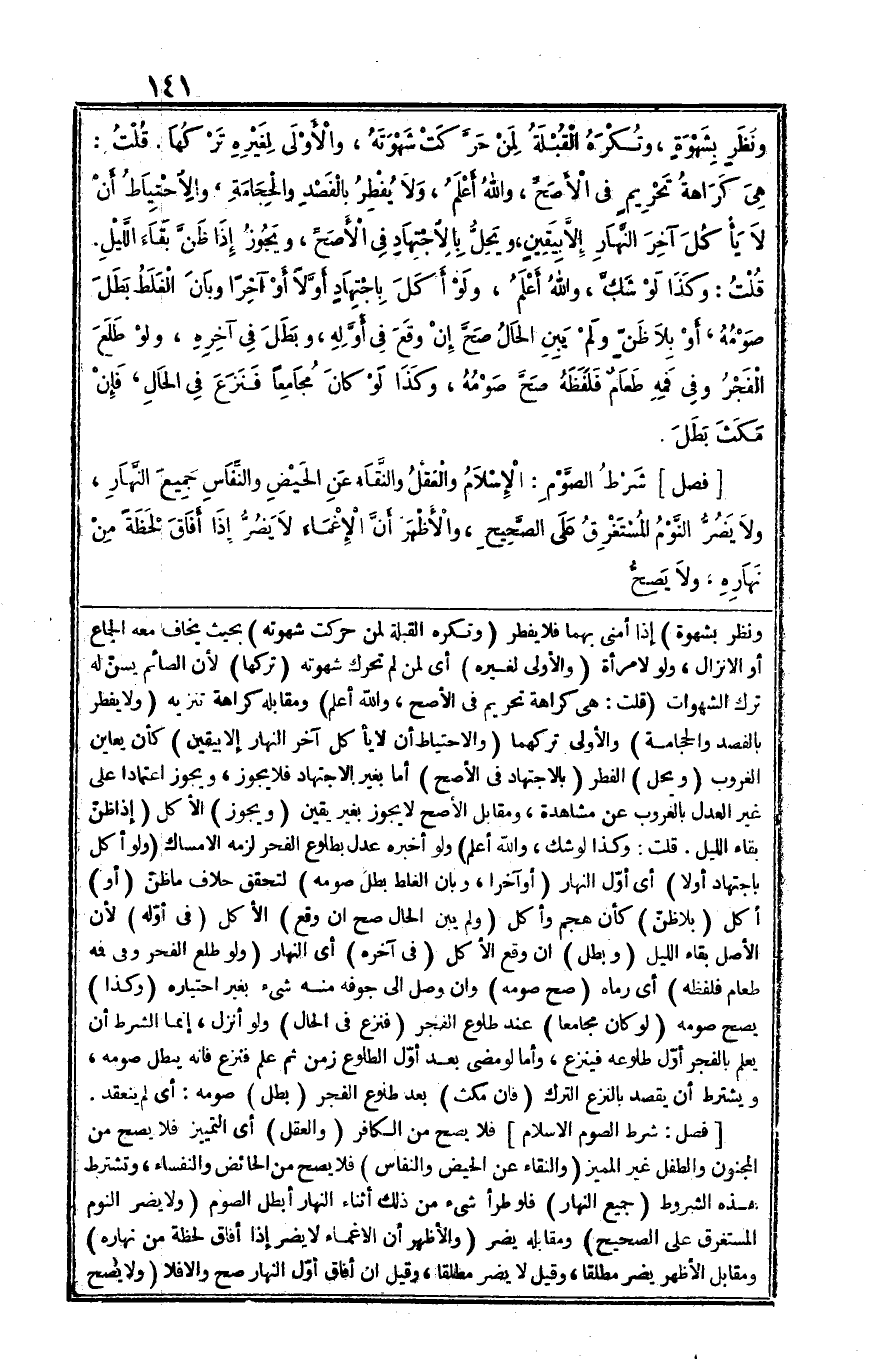 ١٤١
ونَظَرٍ بِشَهْوَةٍ ، وتُكْرَهُ الْقُبْلَةُ لِمَنْ حَرَّكَتْ شَهْوَتَهُ ، والْأَوْلَى لِغَيْرِهِ تَرْكُهَا . قُلْتُ :
هِيَ كَرَاهَةُ تَحْرِيمٍ فى الْأَصَحِّ ، واللهُ أَعْلَمُ ، وَلَا يُفْطِرُ بِالْفَصْدِ والْحِجَامَةِ ، والِاحْتِيَاطُ أَنْ
لَا يَأْكُلَ آخِرَ النَّهَارِ إِلَّابِيَقِينٍ ، ويَحِلُّ بِالِاجْتِهَادِ فِى الْأَصَحِّ ، ويَجُوزُ إِذَا ظَنَّ بَقَاءَ اللَّيْلِ .
قُلْتُ : وكَذَا لَوْ شَكَّ ، واللهُ أَعْلَمُ ، ولَوْ أَكَلَ بِاجْتِهَادٍ أَوَّلًا أَوْ آخِرًا وبَانَ الْغَلَطُ بَطَلَ
صَوْمُهُ ، أَوْ بِلَا ظَنٍّ ولَمْ يَبِنِ الحَالُ صَحَّ إِنْ وقَعَ فِى أَوَّلِهِ ، وبَطَلَ فِى آخِرِهِ ، ولَوْ طَلَعَ
الْفَجْرُ وفِى فَمِهِ طَعَامٌ فَلَفَظَهُ صَحَّ صَوْمُهُ ، وكَذَا لَوْ كانَ مُجَامِعاً فَنَزَعَ فِى الحَالِ ، فَإِنْ
مَكَثَ بَطَلَ .
[ فصل ] شَرْطُ الصَّوْمِ : الْإِسْلَامُ والْعَقْلُ والنَّقَاءُ عَنِ الحَيْضِ والنِّفَاسِ جَمِيعَ النَّهَارِ ،
ولَا يَضُرُّ النَّوْمُ المُسْتَغْرِقُ عَلَى الصَّحِيحِ ، والْأَظْهَرُ أَنَّ الْإِغْمَاءَ لَا يَضُرُّ إِذَا أَفَاقَ لَحْظَةً مِنْ
نَهَارِهِ ، ولَا يَصِحُّ
ونظر بشهوة ) إذا أمنى بهما فلايفطر ( وتكره القبلة لمن حركت شهوته ) بحيث يخاف معه الجماع
أو الانزال ، ولو لامرأة ( والأولى لغيره ) أى لمن لم تحرك شهوته ( تركها ) لأن الصائم يسنّ له
ترك الشهوات ( قلت : هى كراهة تحريم فى الأصح ، والله أعلم ) ومقابله كراهة تنزيه ( ولايفطر
بالفصد والحجامة ) والأولى تركهما ( والاحتياط أن لايأكل آخر النهار إلابيقين ) كأن يعاين
الغروب ( ويحل ) الفطر ( بالاجتهاد فى الأصح ) أما بغير الاجتهاد فلايجوز ، ويجوز اعتمادا على
غير العدل بالغروب عن مشاهدة ، ومقابل الأصح لايجوز بغير يقين ( ويجوز ) الأكل ( إذاظنّ
بقاء الليل . قلت : وكذا لوشك ، والله أعلم ) ولو أخبره عدل بطلوع الفجر لزمه الامساك ( ولو أكل
باجتهاد أولا ) أى أوّل النهار ( أوآخرا ، وبان الغلط بطل صومه ) لتحقق خلاف ماظنّ ( أو )
أكل ( بلاظنّ ) كأن هجم وأكل ( ولم يبن الحال صح ان وقع ) الأكل ( فى أوّله ) لأن
الأصل بقاء الليل ( وبطل ) ان وقع الأكل ( فى آخره ) أى النهار ( ولو طلع الفجر وفى فه
طعام فلفظه ) أى رماه ( صح صومه ) وان وصل الى جوفه منه شىء بغير اختياره ( وكذا )
يصح صومه ( لوكان مجامعا ) عند طلوع الفجر ( فنزع فى الحال ) ولو أنزل ، إنما الشرط أن
يعلم بالفجر أوّل طلوعه فينزع ، وأما لومضى بعد أوّل الطلوع زمن ثم علم فنزع فانه يبطل صومه ،
ويشترط أن يقصد بالنزع الترك ( فان مكث ) بعد طلوع الفجر ( بطل ) صومه : أى لم ينعقد .
[ فصل : شرط الصوم الاسلام ] فلا يصح من الكافر ( والعقل ) أى التمييز فلا يصح من
المجنون والطفل غير المميز ( والنقاء عن الحيض والنفاس ) فلا يصح من الحائض والنفساء ، وتشترط
هذه الشروط ( جميع النهار ) فلو طرأ شىء من ذلك أثناء النهار أبطل الصوم ( ولايضر النوم
المستغرق على الصحيح ) ومقابله يضر ( والأظهر أن الاغماء لايضر إذا أفاق لحظة من نهاره )
ومقابل الأظهر يضر مطلقا ، وقيل لا يضر مطلقا ، وقيل ان أفاق أوّل النهار صح والافلا ( ولا يصح